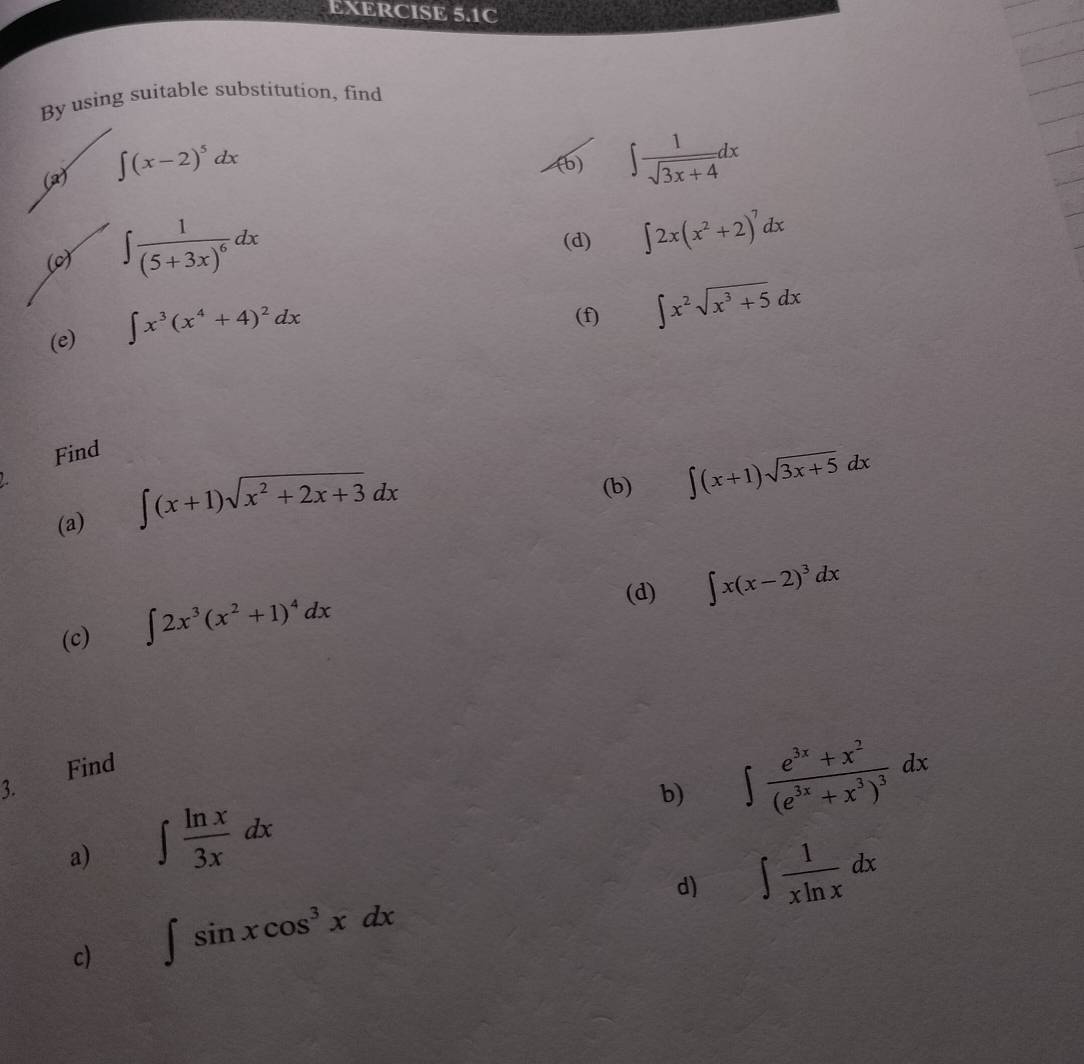 EXERCISE 5.1C
By using suitable substitution, find
(a) ∫(x−2)⁵ dx
(b) ∫ 1/√(3x+4) dx
(c) ∫ 1/(5+3x)⁶ dx
(d) ∫2x(x²+2)⁷ dx
(e) ∫x³(x⁴+4)² dx
(f) ∫x²√(x³+5) dx
2. Find
(a) ∫(x+1)√(x²+2x+3) dx
(b) ∫(x+1)√(3x+5) dx
(c) ∫2x³(x²+1)⁴ dx
(d) ∫x(x−2)³ dx
3. Find
a) ∫ ln x/3x dx
b) ∫ (e³ˣ+x²)/(e³ˣ+x³)³ dx
c) ∫ sin x cos³ x dx
d) ∫ 1/(x ln x) dx